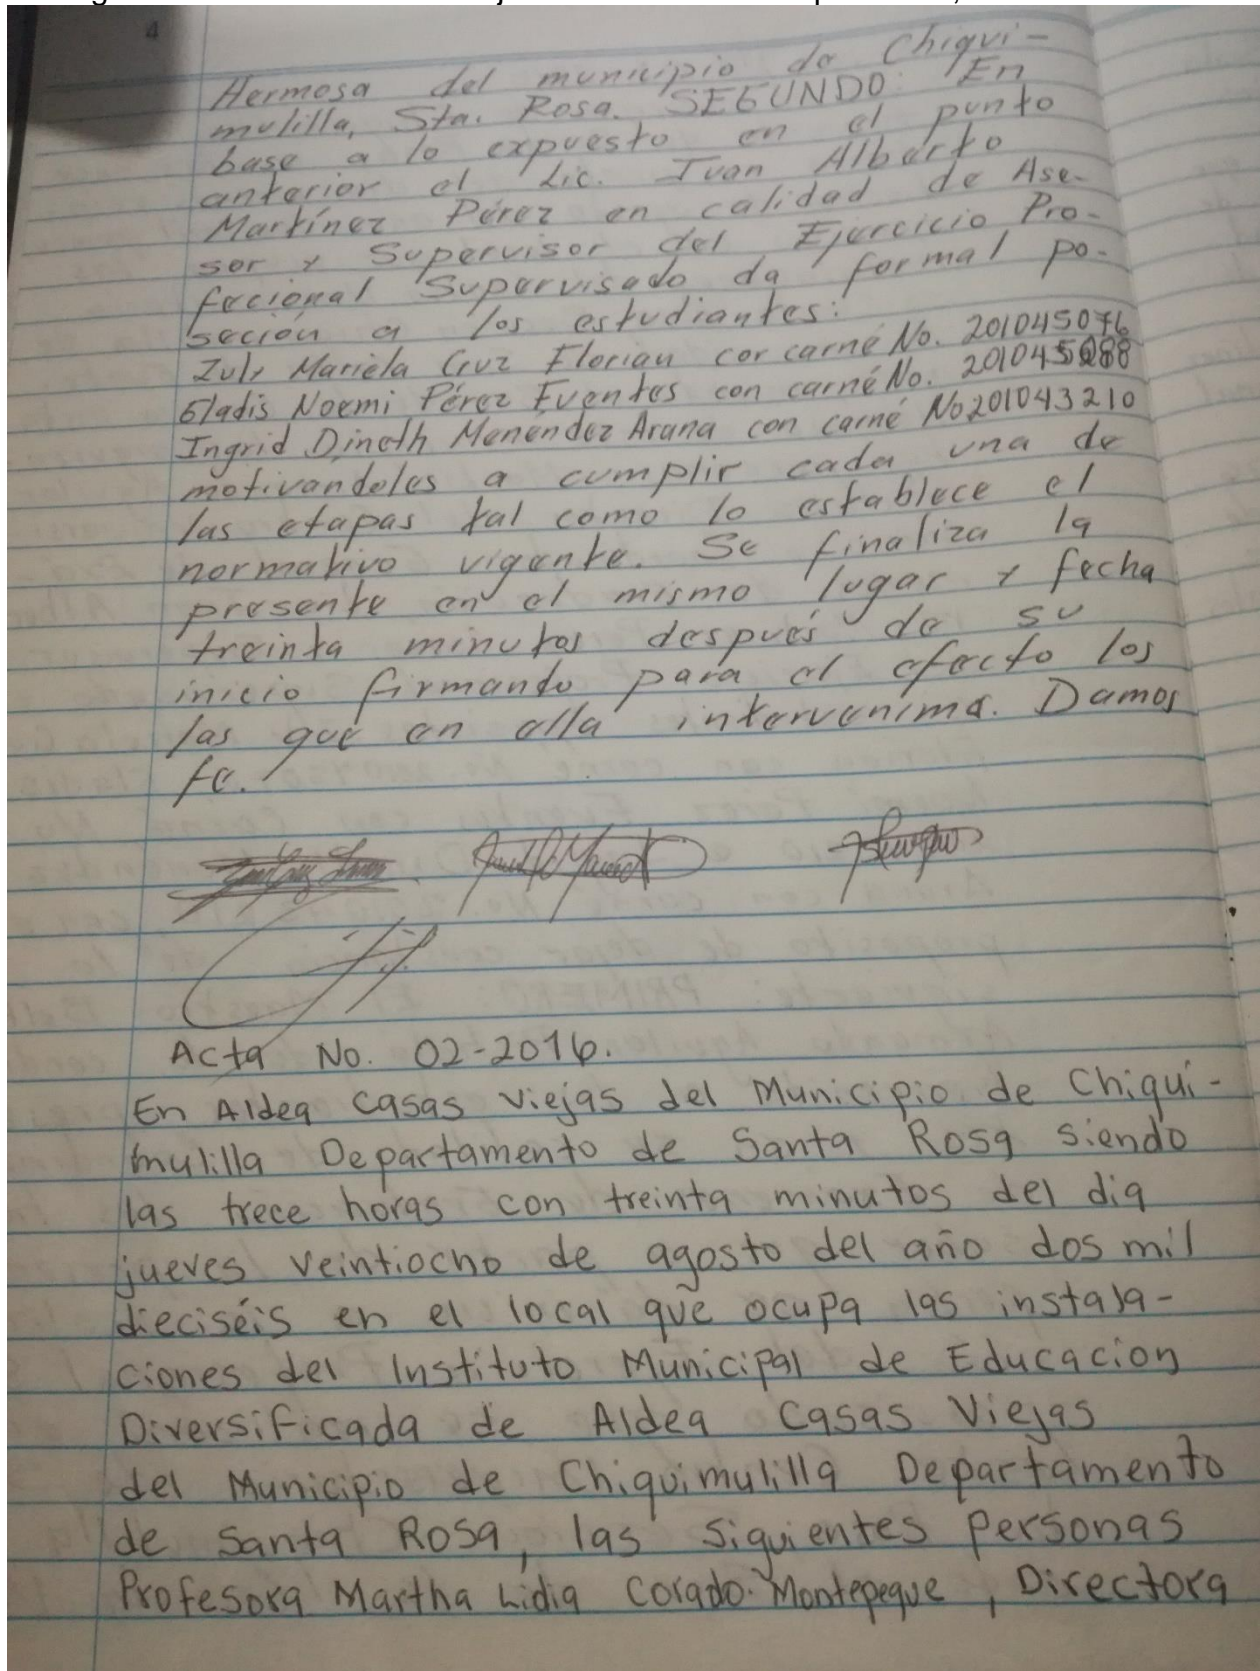 4
Hermosa del municipio de Chiqui-
mulilla, Sta. Rosa. SEGUNDO: En
base a lo expuesto en el punto
anterior el Lic. Ivan Alberto
Martínez Pérez en calidad de Ase-
sor y Supervisor del Ejercicio Pro-
fecional Supervisado da formal po-
seción a los estudiantes:
Zuly Mariela Cruz Florian con carné No. 201045076
Gladis Noemi Pérez Fuentes con carné No.
Ingrid Dineth Menendez Arana con carné No 201043210
motivandoles a cumplir cada una de
las etapas tal como lo establece el
normativo vigente. Se finaliza la
presente en el mismo lugar y fecha
treinta minutos después de su
inicio firmando para el efecto los
las que en ella intervenimos. Damos
fe.
Acta No. 02-2016.
En Aldea Casas Viejas del Municipio de Chiqui-
mulilla Departamento de Santa Rosa siendo
las trece horas con treinta minutos del dia
jueves veintiocho de agosto del año dos mil
dieciséis en el local que ocupa las instala-
ciones del Instituto Municipal de Educacion
Diversificada de Aldea Casas Viejas
del Municipio de Chiquimulilla Departamento
de Santa Rosa, las siguientes personas
Profesora Martha Lidia Corado Montepeque, Directora